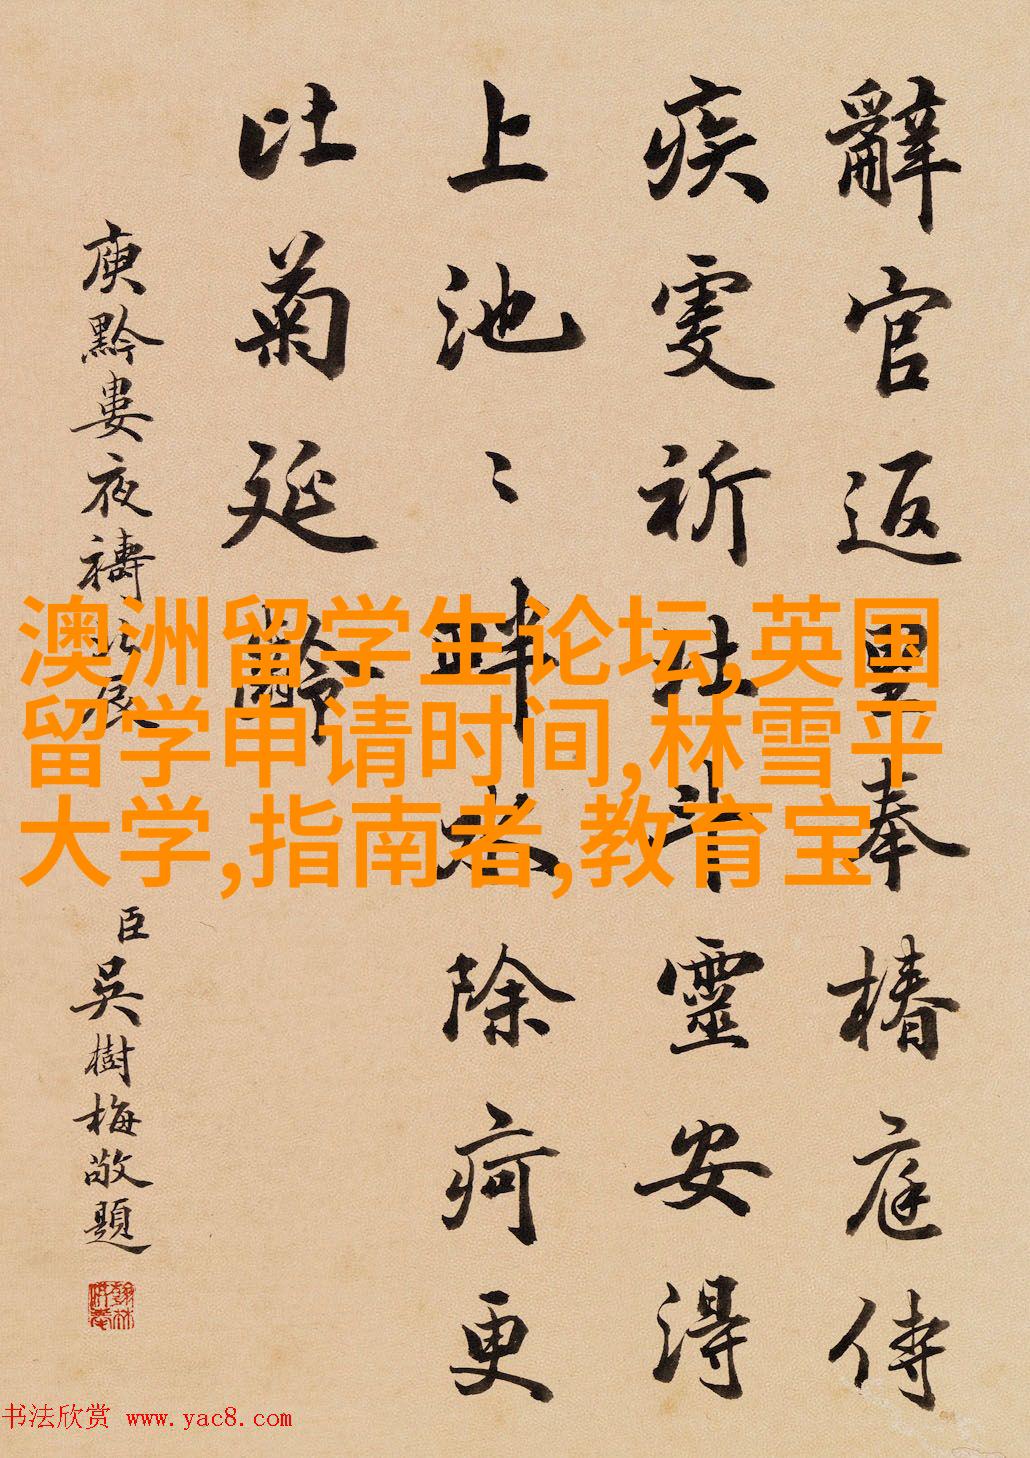 辭官返里奉椿庭侍
疾虔祈北斗靈安得
上池〻畔水除疴更
比菊延齡
庾黔婁夜禱北辰
臣吳樹梅敬題
澳洲留学生论坛,英国
留学申请时间,林雪平
大学,指南者,教育宝
书法欣赏 www.yac8.com